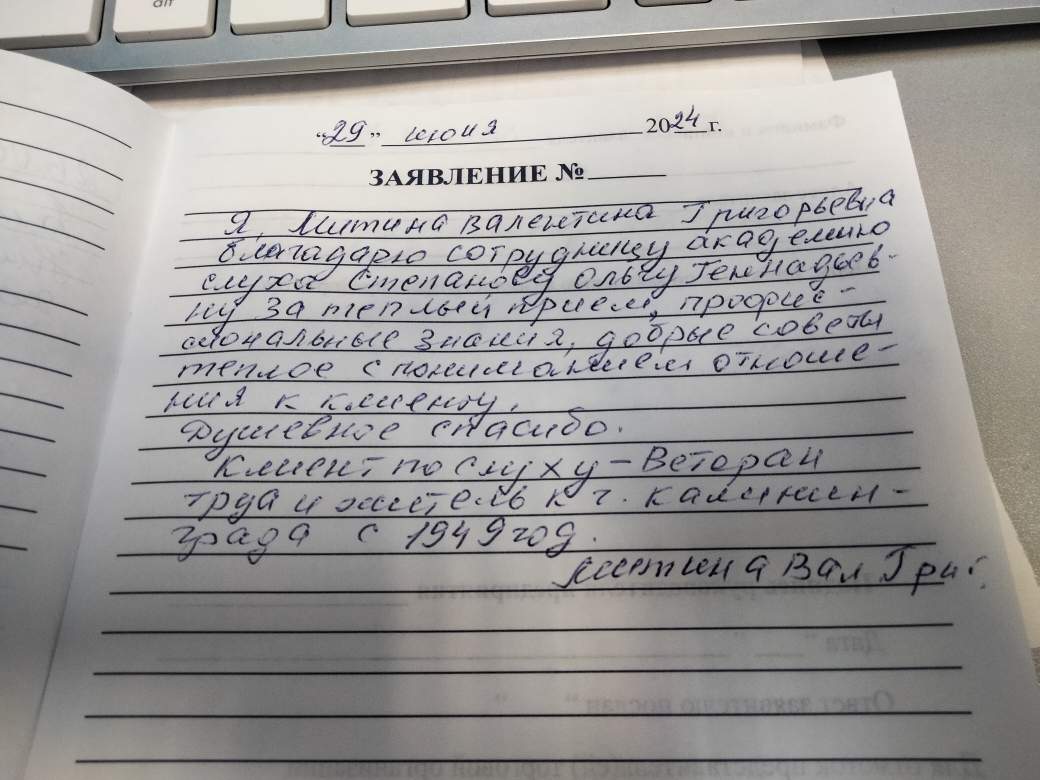 alt
"29" июня 2024 г.
ЗАЯВЛЕНИЕ № 
Я, Митина Валентина Григорьевна
благадарю сотрудницу академию
слуха Степанову Ольгу Геннадьев-
ну за теплый прием, профис-
сиональные знания, добрые советы
теплое с пониманием отноше-
ния к клиенту.
Душевное спасибо.
Клиент по слуху - Ветеран
труда и житель к г. Калинин-
града с 1949 год.
Митина Вал Григ.